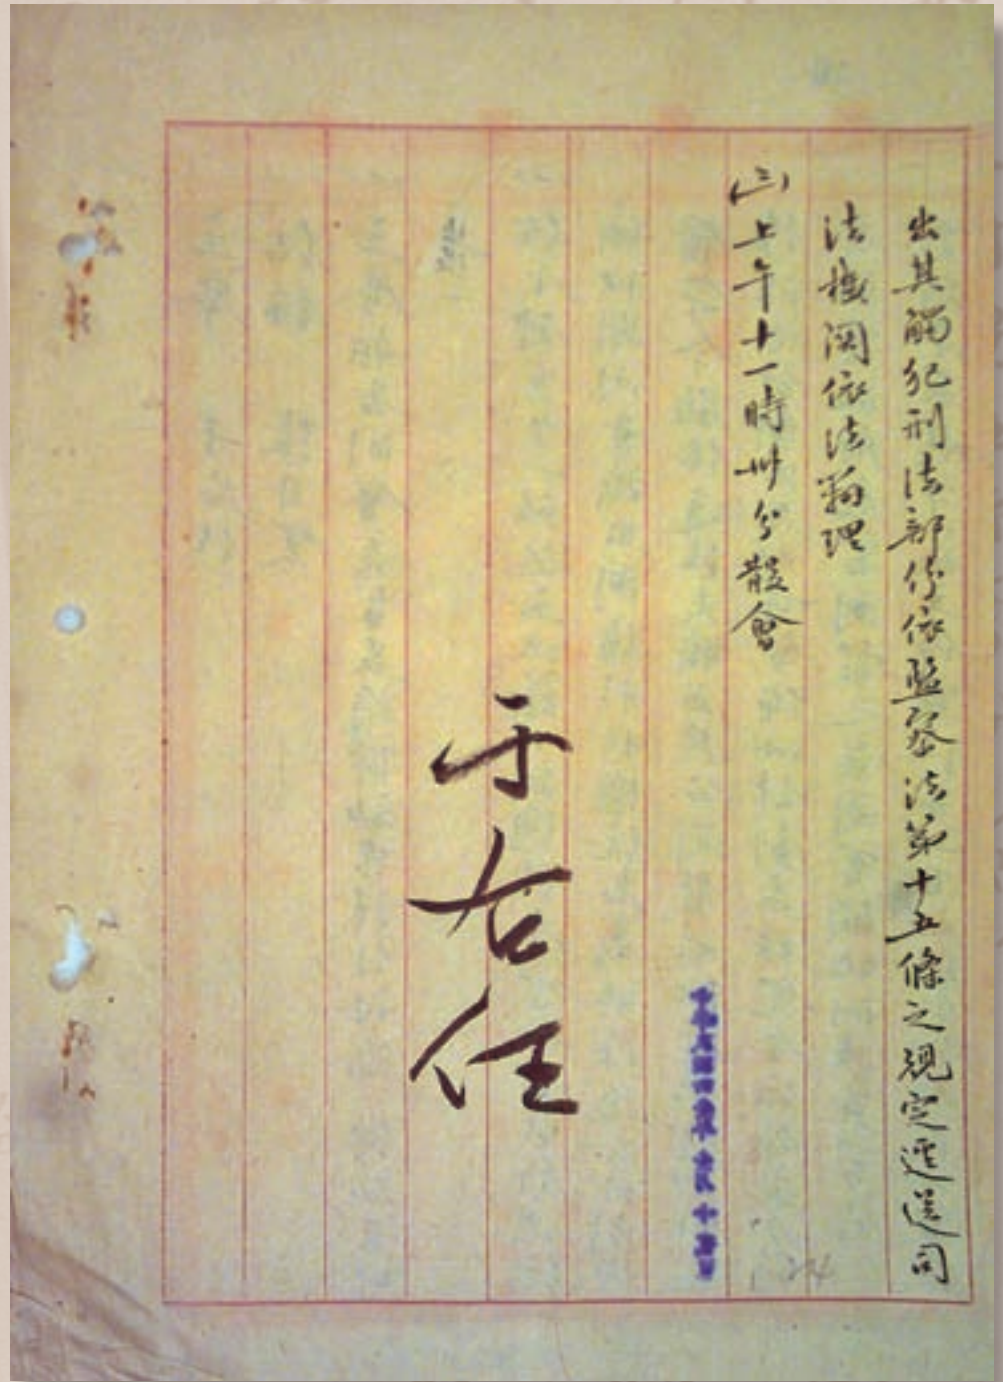 出其觸犯刑法部份依監察法第十五條之規定逕送司
法機関依法辦理
(三)上午十一時卅分散會
于右任